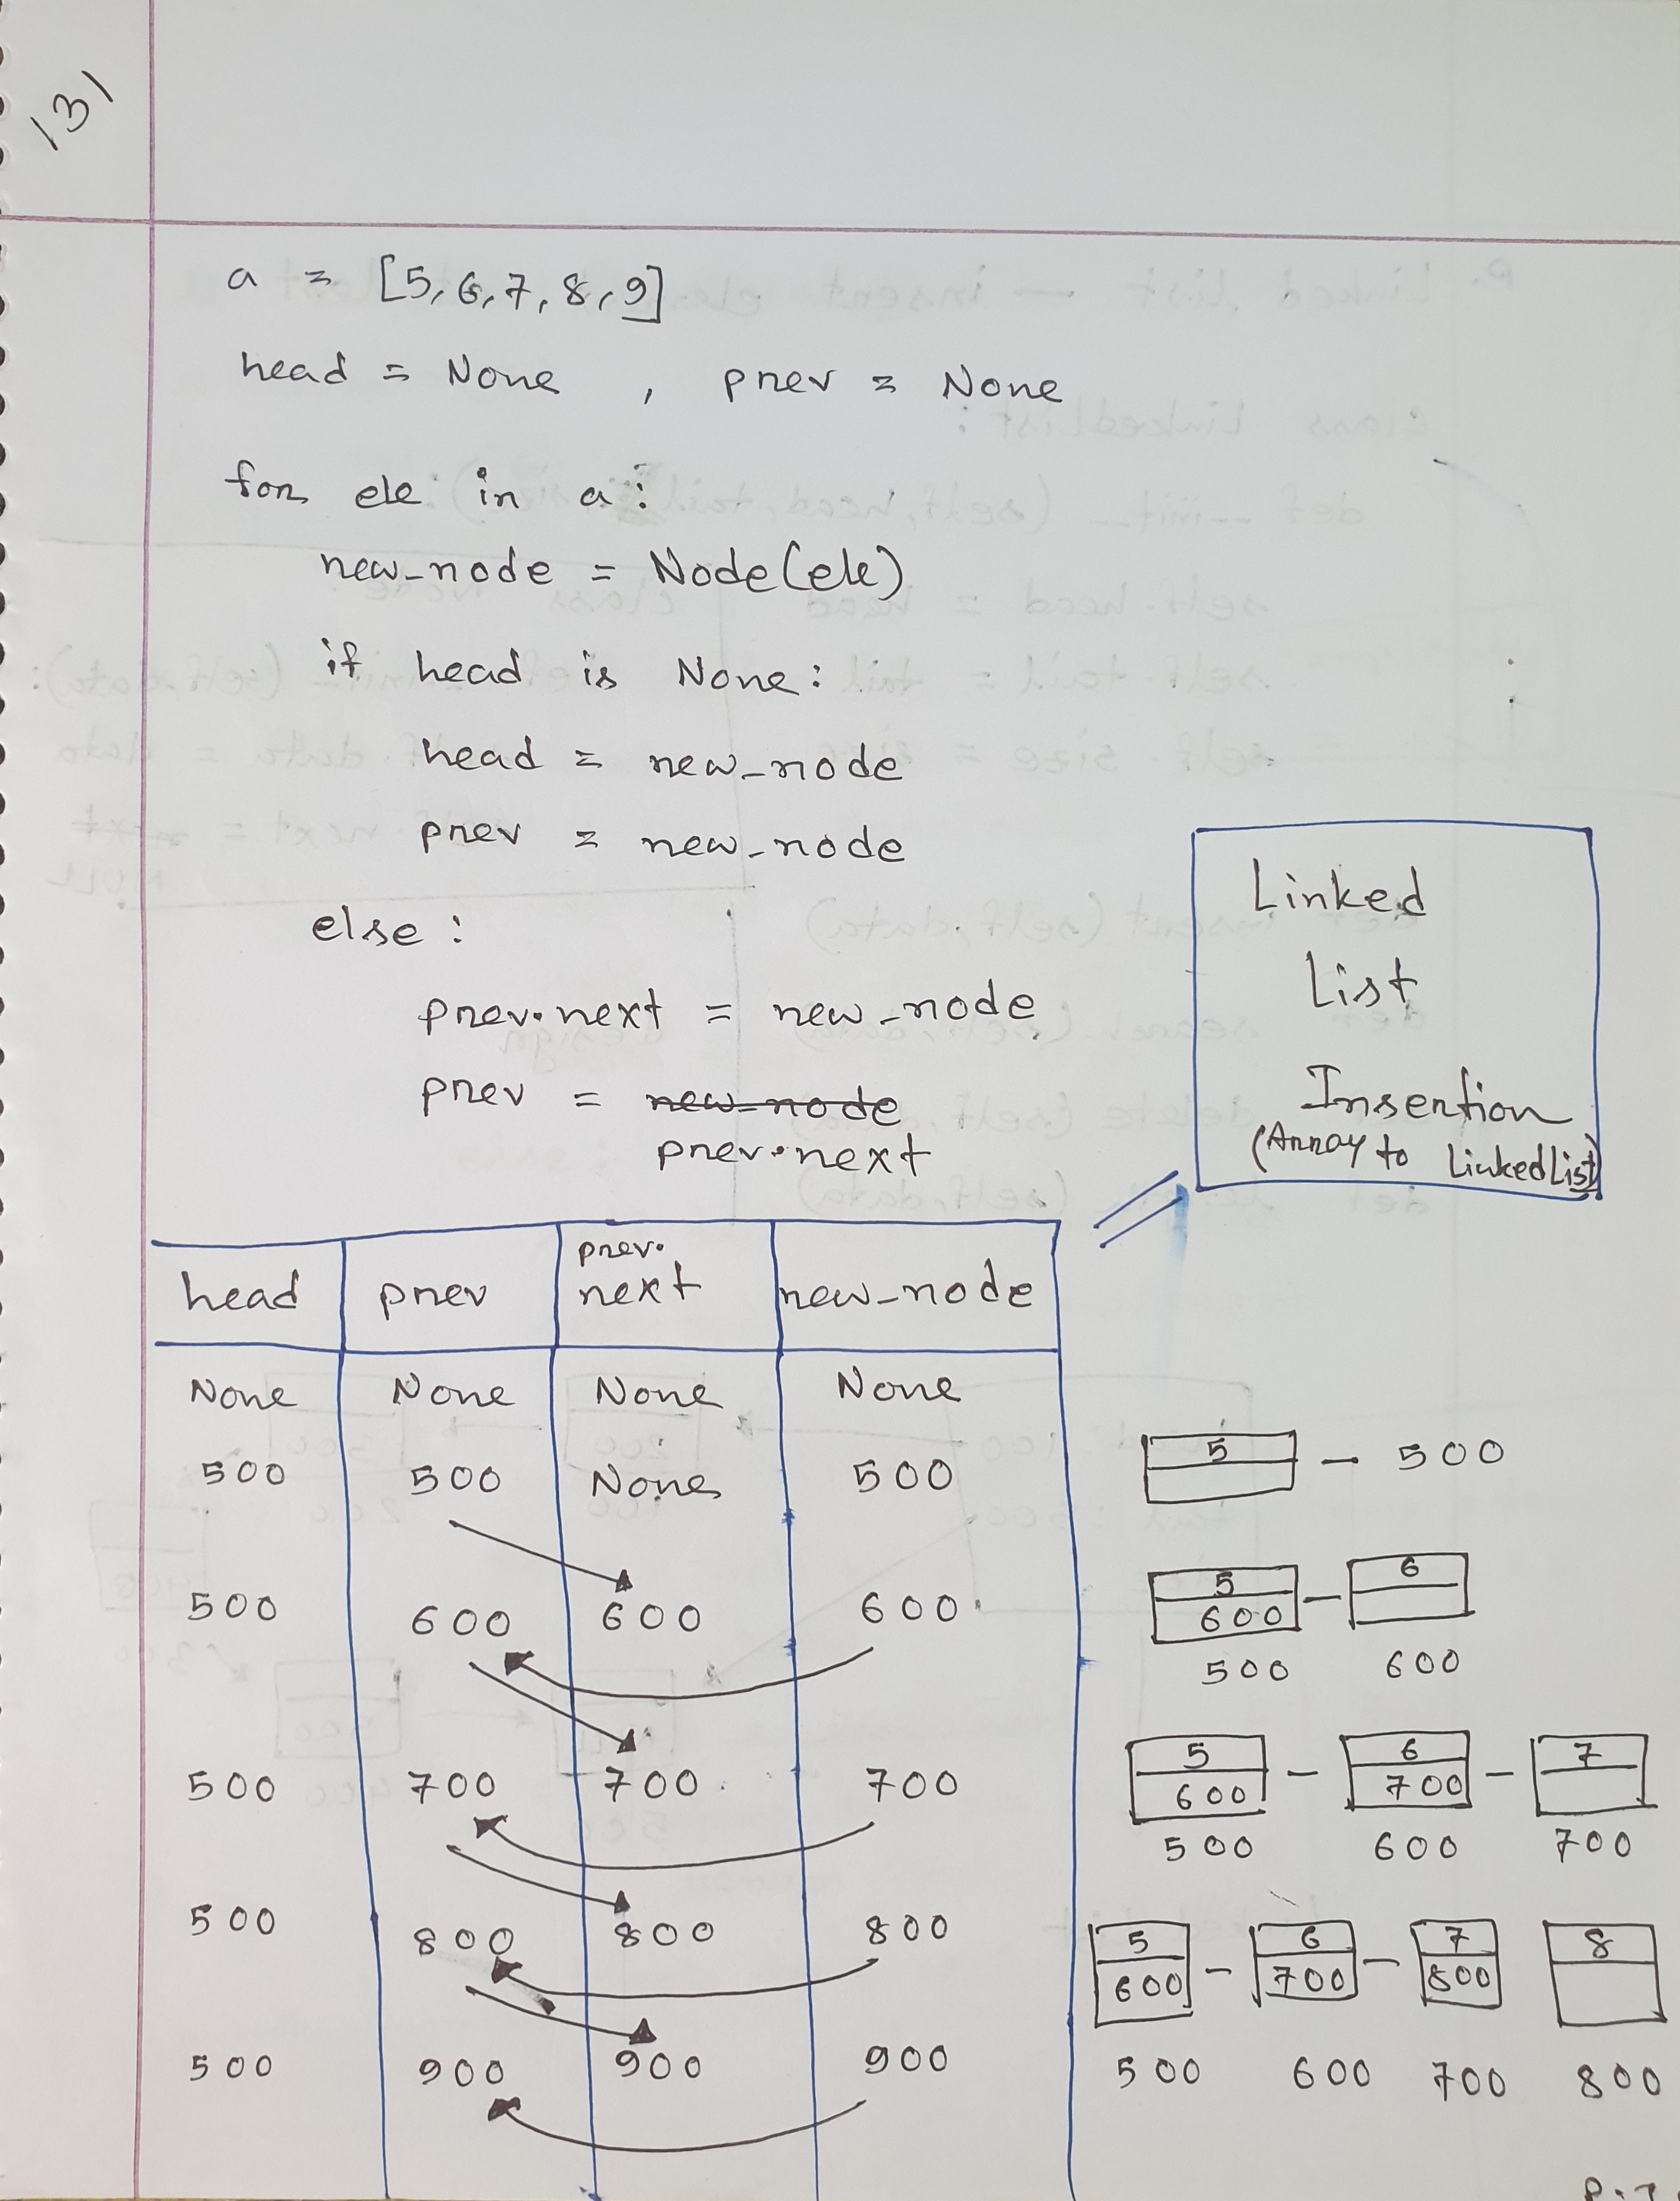 131
a = [5,6,7,8,9]
head = None , prev = None
for ele in a:
new_node = Node(ele)
if head is None:
head = new_node
prev = new_node
else:
prev.next = new_node
prev = new_node
prev.next
Linked
List
Insertion
(Array to LinkedList)
head prev prev.next new_node
None None None None
500 500 None 500
5 - 500
500 600 600 600
5 6
600
500 600
500 700 700 700
5 6 7
600 700
500 600 700
500 800 800 800
5 6 7 8
600 700 800
500 600 700 800
500 900 900 900